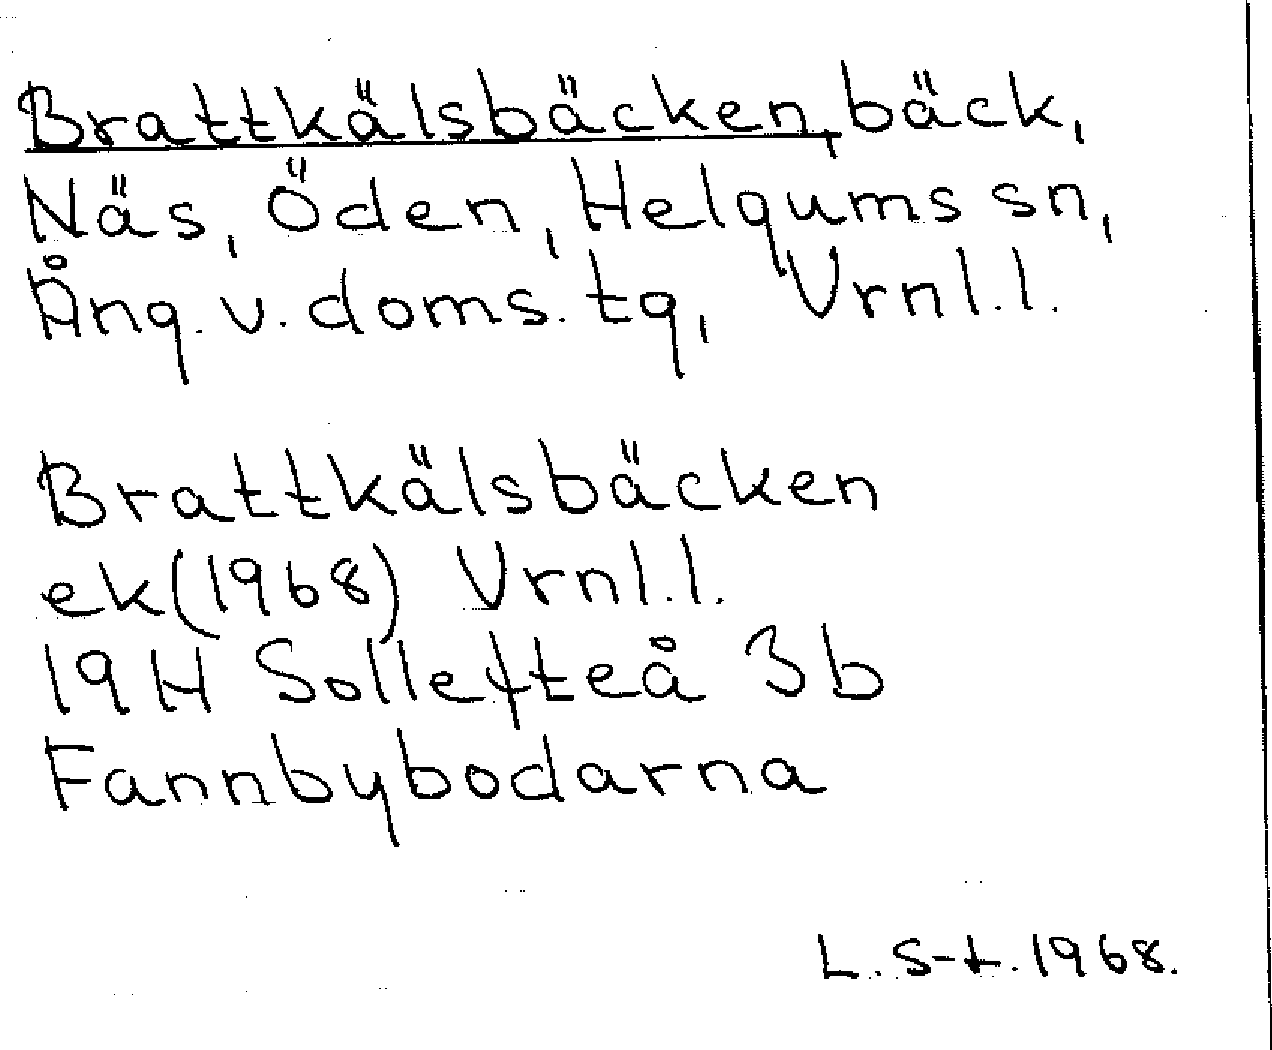 Brattkälsbäcken, bäck,
Näs, Öden, Helgums sn,
Ång. v. doms. tg, Vrnl.l.
Brattkälsbäcken
ek(1968) Vrnl.l.
19H Sollefteå 3b
Fannbybodarna
L. S-t. 1968.